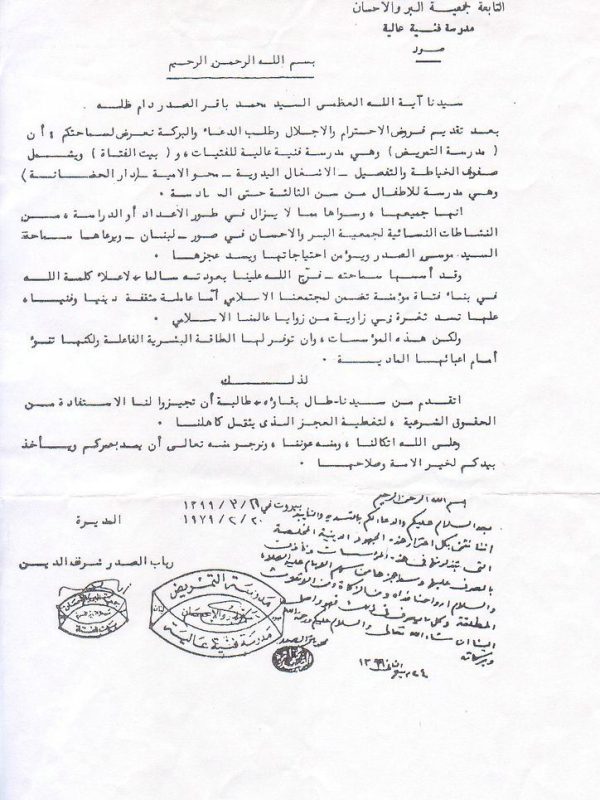 التابعة لجمعية البر والاحسان
مدرسة فنية عالية
صور
بسم الله الرحمن الرحيم
سيدنا آية الله العظمى السيد محمد باقر الصدر دام ظله .
بعد تقديم فروض الاحترام والاجلال وطلب الدعاء والبركة نعرض لسماحتكم ، أن
( مدرسة التمريض ) وهي مدرسة فنية عالية للفتيات ، و ( بيت الفتاة ) ويشمل
صفوف الخياطة والتفصيل ـ الاشغال اليدوية ـ محو الامية ـ ( دار الحضانة )
وهي مدرسة للاطفال من سن الثالثة حتى السادسة .
انها جميعها ، وسواها مما لا يزال في طور الاعداد أو الدراسة ، من
النشاطات النسائية لجمعية البر والاحسان في صور ـ لبنان ـ ويرعاها سماحة
السيد موسى الصدر ويؤمن احتياجاتها ويسد عجزها .
وقد أسسها سماحته ـ فرّج الله علينا بعودته سالما ، لاعلاء كلمة الله
في بناء فتاة مؤمنة تضمن لمجتمعنا الاسلامي أمّا عاملة مثقفة دينيا وفنيا ،
علها تسد ثغرة في زاوية من زوايا عالمنا الاسلامي .
ولكن هذه المؤسسات ، وان توفر لها الطاقة البشرية الفاعلة ولكنها تنوء
أمام اعبائها المادية .
لذلك
اتقدم من سيدنا ـ طال بقاؤه ، طالبة أن تجيزوا لنا الاستفادة من
الحقوق الشرعية ، لتغطية العجز الذى يثقل كاهلنا .
وعلى الله اتكالنا ، ومنه عوننا ، ونرجو منه تعالى أن يمد بعمركم ويأخذ
بيدكم لخير الامة وصلاحها .
بيروت في ٢١ / ٣ / ١٣٩٩
١٩٧٩/٢/٢٠
المديرة
رباب الصدر شرف الدين
بسم الله الرحمن الرحيم
بعد السلام عليكم والدعاء لكم بالتسديد والتأييد
اننا نثمن بكل اعتزاز هذه الجهود الدينية المخلصة
التي تبذلونها في هذه المؤسسات ونأذن
بالصرف عليها من سهم الامام عليه الصلاة
والسلام ارواحنا فداه ومن الزكاة ومن
المطلقة وكل ما يصرف في ذلك فهو واصل
الينا ان شاء الله تعالى والسلام عليكم ورحمة الله
وبركاته
محمد باقر الصدر
٢٤ ربيع الثاني ١٣٩٩
مدرسة التمريض
البر والاحسان
مدرسة فنية عالية